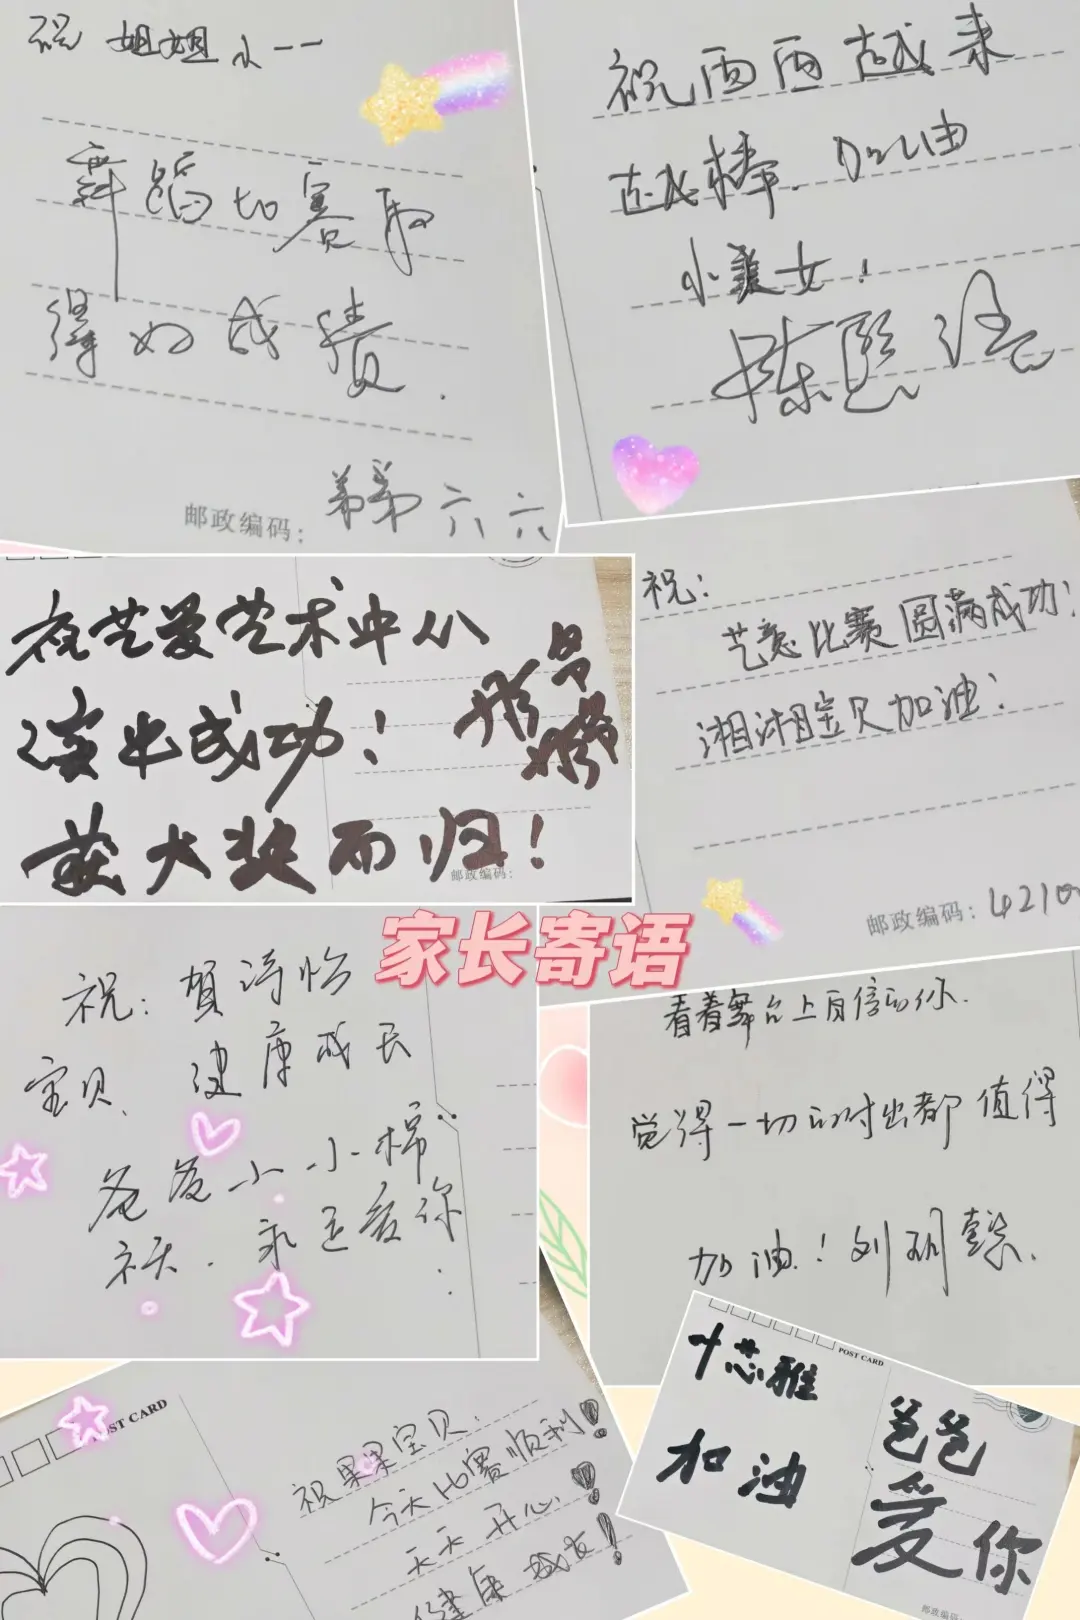 祝 姐姐小一一
舞蹈比赛取
得好成绩.
弟弟 六六
邮政编码：
祝雨雨越来
越棒.加油
小美女！
祝艺爱艺术中心
演出成功！
获大奖而归！
邮政编码：
祝：
艺意比赛圆满成功！
湘湘宝贝加油！
邮政编码：4210
家长寄语
祝：贺诗怡
宝贝、健康成长
爸爸小小棉
袄.永远爱你.
看着舞台上自信的你.
觉得一切的付出都值得
加油！刘玥
POST CARD
祝果果宝贝：
今天比赛顺利！
天天开心！
健康成长！
POST CARD
叶芯雅
加油
爸爸
爱你
邮政编